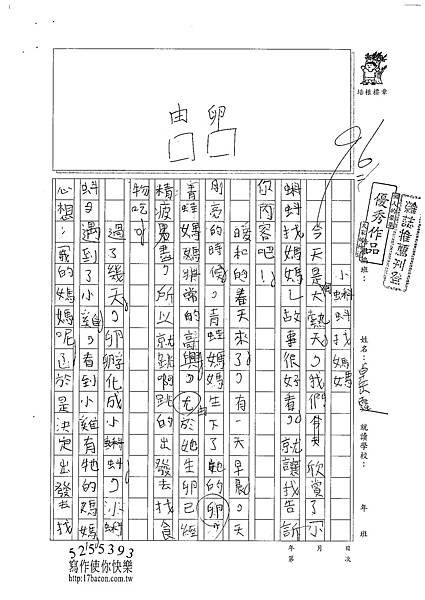 培根標章
96
優秀作品
雜誌推薦刊登
由 卵
班：
姓名：
就讀學校：
年 班
年 月 日
第 次
小蝌蚪找媽媽
今天是大熱天，我們今天欣賞了小
蝌蚪找媽媽乚故事很好看，就讓我告訴
你內容吧！
暖和的春天來了，有一天早晨，天
剛亮的時候，青蛙媽媽生下了她的卵
青蛙媽媽非常的高興，尤於她生卵已經
精疲力盡，所以就跳啊跳的出發去找食
物吃。
過了幾天，卵孵化成小蝌蚪，小蝌
蚪遇到了小雞，看到小雞有牠的媽媽
心想：我的媽媽呢？於是決定出發去找
5215393
寫作使你快樂
http://17bacon.com.tw